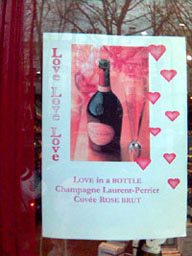 Love Love Love
LOVE in a BOTTLE
Champagne Laurent-Perrier
Cuvée ROSE BRUT